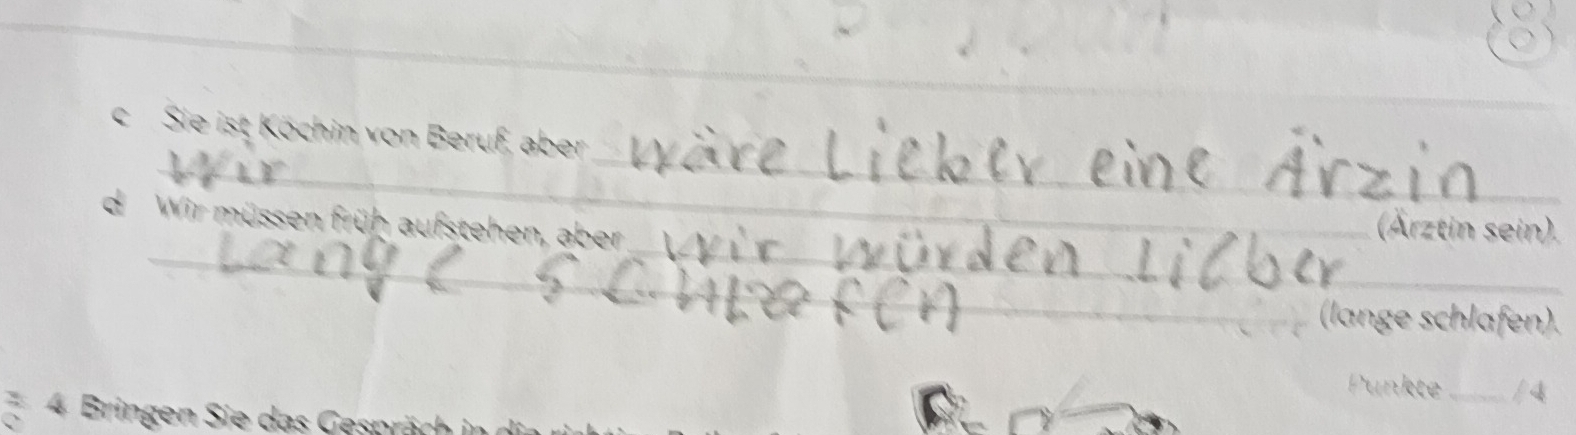 8
c Sie ist Köchin von Beruf, aber wäre Lieber eine Ärzin
wir
(Ärztin sein).
d Wir müssen früh aufstehen, aber wir würden Lieber
Lange schlafen
(lange schlafen).
Punkte ____ / 4
4 Bringen Sie das Gespräch in die